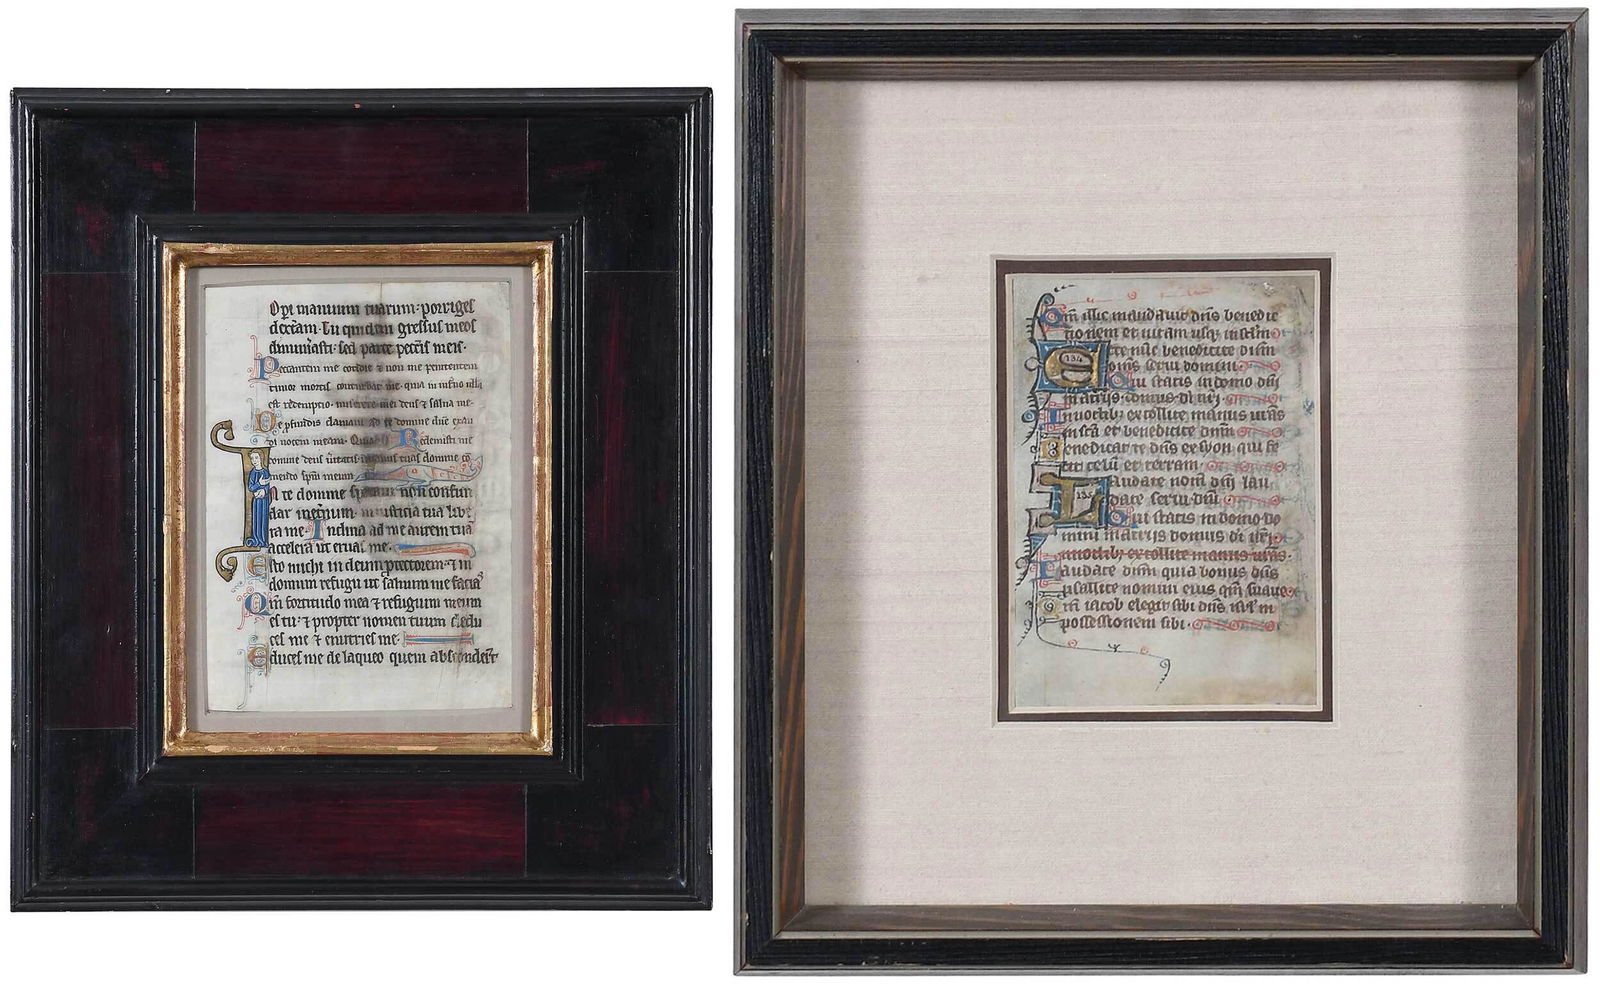 Opi manuum tuarum porriges
dexteram. Tu quidem gressus meos
dinumerasti. sed parce peccatis meis.
Peccantem me cotidie et non me penitentem
timor mortis conturbat me. quia in inferno nulla
est redemptio. miserere mei deus et salva me.
De profundis clamavi ad te domine domine exau
di vocem meam. Redemisti me
domine deus veritatis. manus tuas domine co
mendo spiritum meum.
In te domine speravi non confun
dar in eternum. in iusticia tua libe
ra me. Inclina ad me aurem tuam
accelera ut eruas me.
Esto michi in deum protectorem et in
domum refugii ut salvum me facias
Quoniam fortitudo mea et refugium meum
es tu. et propter nomen tuum dedu
ces me et enutries me.
Educes me de laqueo quem absconderunt
Quoniam illic mandavit dns benedic
tionem et vitam usq; in seculum
Ecce nunc benedicite dominum
134
omnes servi domini.
Qui statis in domo dni
in atriis domus dei nostri
In noctibus extollite manus vestras
in sancta et benedicite dominum
Benedicat te dns ex syon qui fe
cit celum et terram.
Laudate nomen domini lau
135
date servi dominum
Qui statis in domo do
mini in atriis domus dei nostri
in noctibus extollite manus vestras.
Laudate dominum quia bonus dns
psallite nomini eius quoniam suave
Quoniam iacob elegit sibi dns israel in
possessionem sibi.